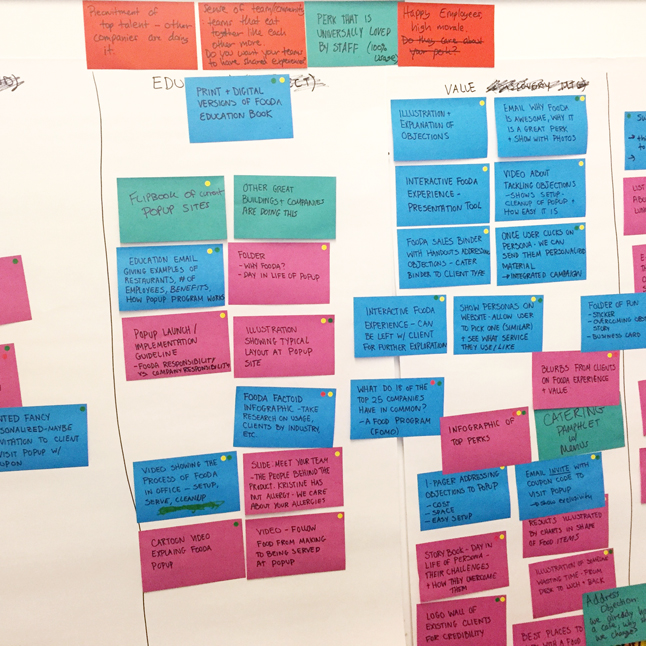 Recruitment of
top talent - other
companies are doing
it.
Sense of team/community
teams that eat
together like each
other more.
Do you want your teams
to have shared experience?
PERK THAT IS
UNIVERSALLY LOVED
BY STAFF (100%
Happy Employees,
high morale.
Do they care about
your perk?
EDU
PRINT + DIGITAL
VERSIONS OF FOODA
EDUCATION BOOK
FLIPBOOK OF current
POPUP SITES
OTHER GREAT
BUILDINGS + COMPANIES
ARE DOING THIS
EDUCATION EMAIL
GIVING EXAMPLES OF
RESTAURANTS, # OF
EMPLOYEES, BENEFITS,
HOW POPUP PROGRAM WORKS
FOLDER
- WHY FOODA?
- DAY IN LIFE OF POPUP
POPUP LAUNCH /
IMPLEMENTATION
GUIDELINE
- FOODA RESPONSIBILITY
VS COMPANY RESPONSIBILITY
ILLUSTRATION
SHOWING TYPICAL
LAYOUT AT POPUP
SITE
FOODA FACTOID
INFOGRAPHIC - TAKE
RESEARCH ON USAGE,
CLIENTS BY INDUSTRY,
ETC.
VIDEO SHOWING THE
PROCESS OF FOODA
IN OFFICE - SETUP,
SERVE, CLEANUP
SLIDE: MEET YOUR TEAM
- THE PEOPLE BEHIND THE
PRODUCT. KRISTINE HAS
NUT ALLERGY - WE CARE
ABOUT YOUR ALLERGIES
CARTOON VIDEO
EXPLAING FOODA
POPUP
VIDEO - FOLLOW
FOOD FROM MAKING
TO BEING SERVED
AT POPUP
VALUE
ILLUSTRATION +
EXPLANATION OF
OBJECTIONS
EMAIL WHY FOODA
IS AWESOME, WHY IT
IS A GREAT PERK
+ SHOW WITH PHOTOS
INTERACTIVE FOODA
EXPERIENCE -
PRESENTATION TOOL
VIDEO ABOUT
TACKLING OBJECTIONS
- SHOWS SETUP -
CLEANUP OF POPUP +
HOW EASY IT IS
FOODA SALES BINDER
WITH HANDOUTS ADDRESSING
OBJECTIONS - CATER
BINDER TO CLIENT TYPE
ONCE USER CLICKS ON
PERSONA - WE CAN
SEND THEM PERSONALIZED
MATERIAL
- INTEGRATED CAMPAIGN
INTERACTIVE FOODA
EXPERIENCE - CAN
BE LEFT W/ CLIENT
FOR FURTHER EXPLORATION
SHOW PERSONAS ON
WEBSITE - ALLOW USER
TO PICK ONE (SIMILAR)
+ SEE WHAT SERVICE
THEY USE/LIKE
FOLDER OF FUN
- STICKER
- OVERCOMING
STORY
- BUSINESS CARD
BLURBS FROM CLIENTS
ON FOODA EXPERIENCE
+ VALUE
WHAT DO 18 OF THE
TOP 25 COMPANIES
HAVE IN COMMON?
- A FOOD PROGRAM
(FOMO)
INFOGRAPHIC OF
TOP PERKS
CATERING
PAMPHLET
W/
MENUS
1-PAGER ADDRESSING
OBJECTIONS TO POPUP
- COST
- SPACE
- EASY SETUP
EMAIL INVITE WITH
COUPON CODE TO
VISIT POPUP
RESULTS ILLUSTRATED
BY CHARTS IN SHAPE
OF FOOD ITEMS
STORY BOOK - DAY IN
LIFE OF PERSONA -
THEIR CHALLENGES
+ HOW THEY OVERCOME
THEM
ILLUSTRATION OF SOMEONE
WASTING TIME - FROM
DESK TO LUNCH + BACK
LOGO WALL OF
EXISTING CLIENTS
FOR CREDIBILITY
BEST PLACES TO
WITH A FOOD
Address
Objection:
We already have
a cafe, why
we change?
FANCY
- MAYBE
TO CLIENT
VISIT POPUP W/